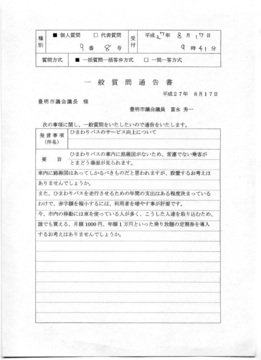 種別 ■ 個人質問 □ 代表質問 受付 平成27年 8月17日
9番 8号 9時41分
質問方式 ■ 一括質問一括答弁方式 □ 一問一答方式
一般質問通告書
平成27年 8月17日
豊明市議会議長 様
豊明市議会議員 富永 秀一
次の事項に関し、一般質問をいたしたいので通告をいたします。
発言事項 ひまわりバスのサービス向上について
(件名)
要旨 ひまわりバスの車内に路線図がないため、常連でない乗客が
とまどう場面が見られます。
車内に路線図はあってしかるべきものだと思われますが、設置するお考えは
ありませんでしょうか。
また、ひまわりバスを走行させるための年間の支出はある程度決まっている
わけで、赤字額を縮小するには、利用者を増やす事が肝要です。
今、市内の移動には車を使っている人が多く、こうした人達を取り込むため、
誰でも買える、月額1000円、年額1万円といった乗り放題の定期券を導入
するお考えはありませんでしょうか。